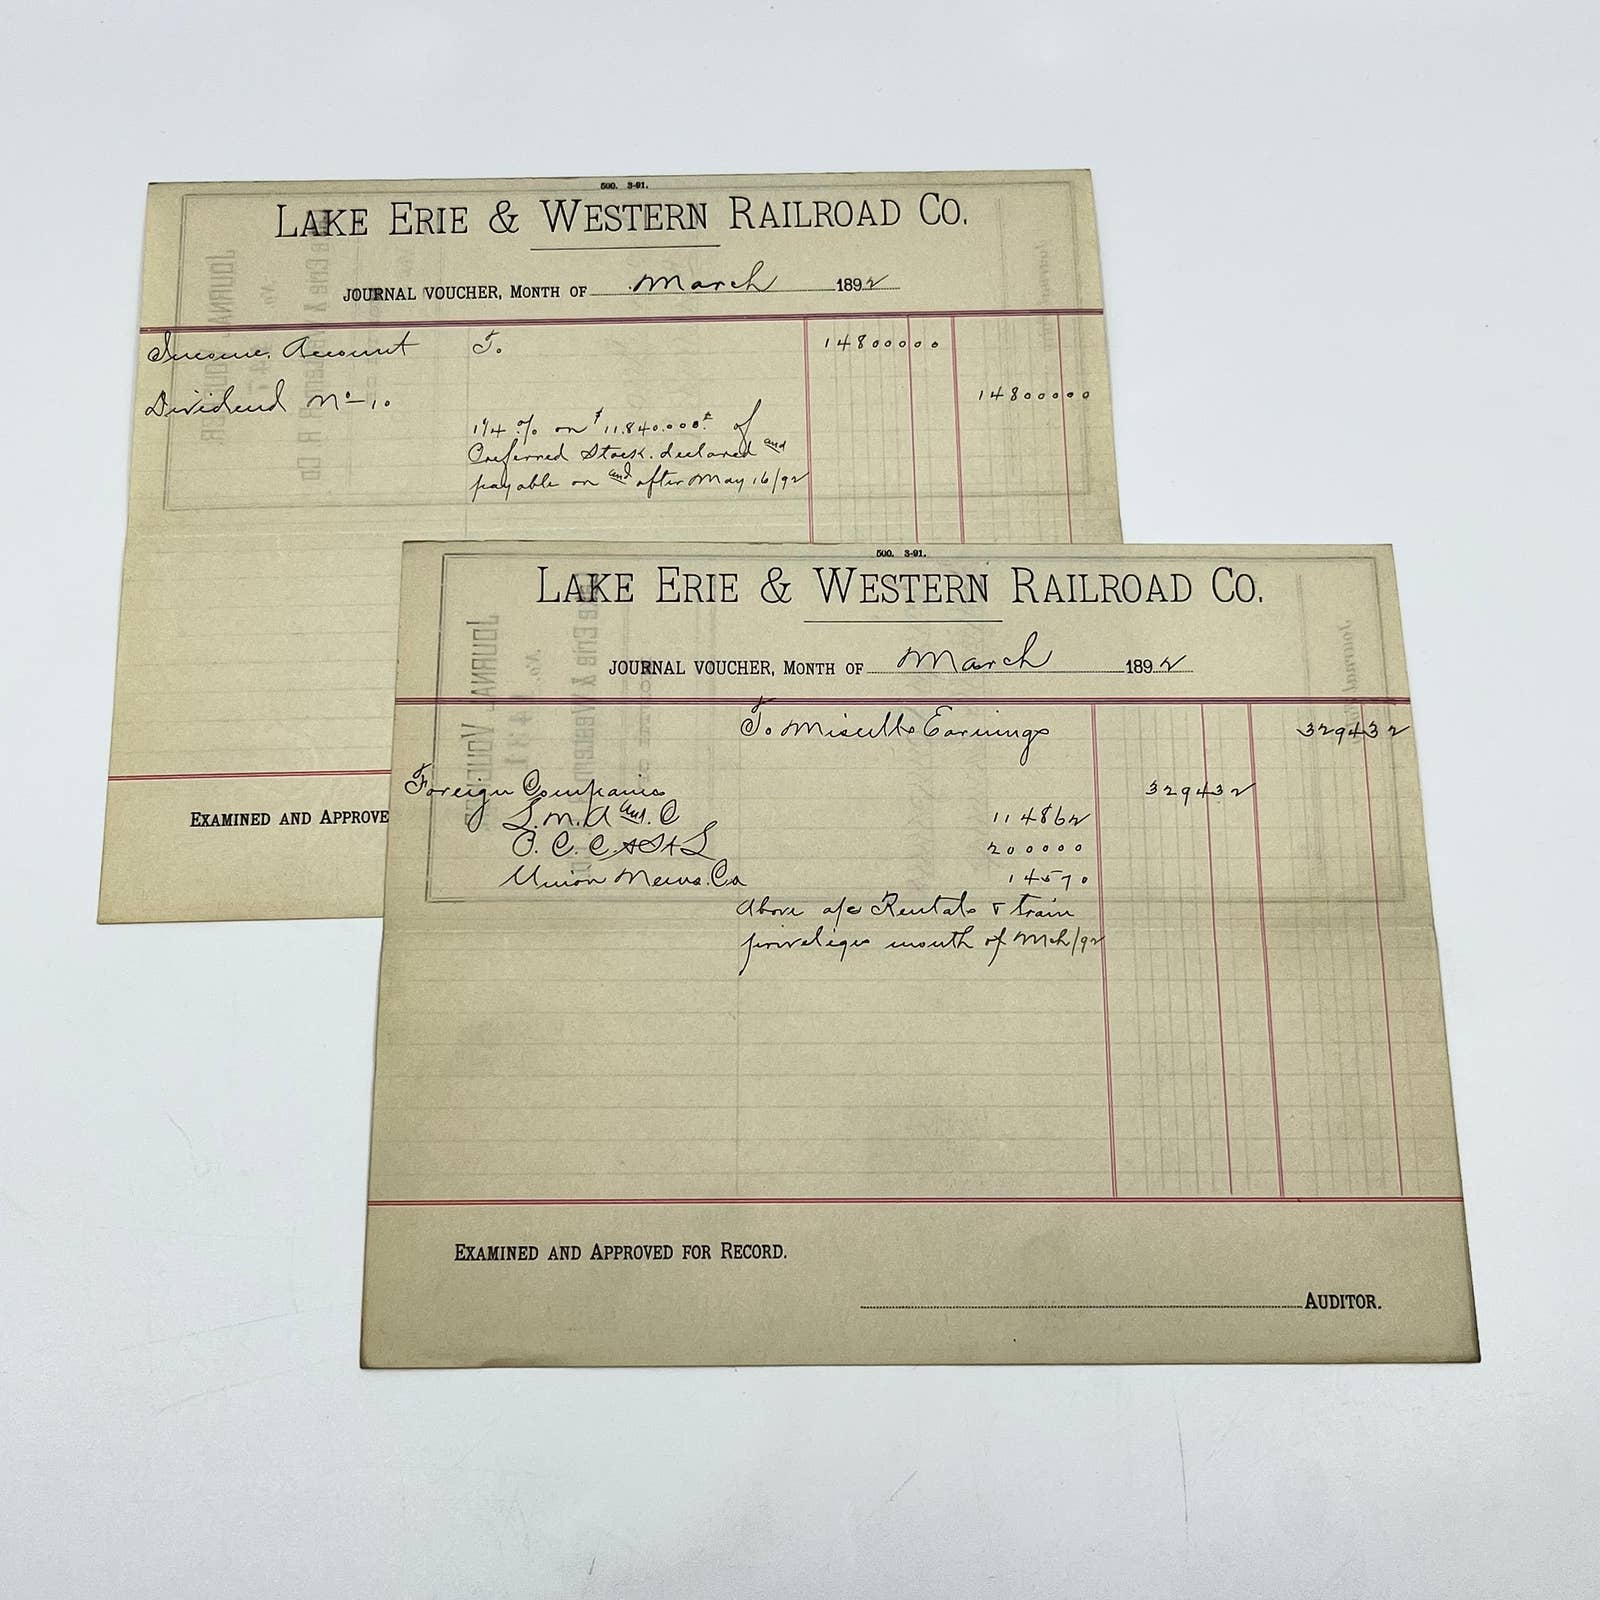 500. 3-91.
LAKE ERIE & WESTERN RAILROAD CO.
JOURNAL VOUCHER, MONTH OF March 1892
Income Account To 14800000
Dividend No 10 14800000
1 1/4 % on $11.840.000 of
Preferred Stock. declared and
payable on and after May 16/92
EXAMINED AND APPROVE
500. 3-91.
LAKE ERIE & WESTERN RAILROAD CO.
JOURNAL VOUCHER, MONTH OF March 1892
To Miscells Earnings 329432
Foreign Companies 329432
L. N. A and C 114862
P. C. C & St L 200000
Union News. Co 14570
Above a/c Rentals & train
priveliges month of Mch/92
EXAMINED AND APPROVED FOR RECORD.
AUDITOR.